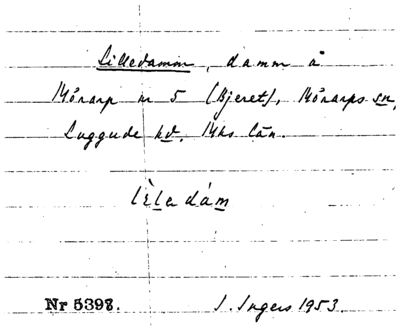 Lilledamm, damm å
Mörarp nr 5 (Bjeret), Mörarps sn,
Luggude hd, Mhs län.
lèla dám
Nr 5398.
I. Ingers 1953.